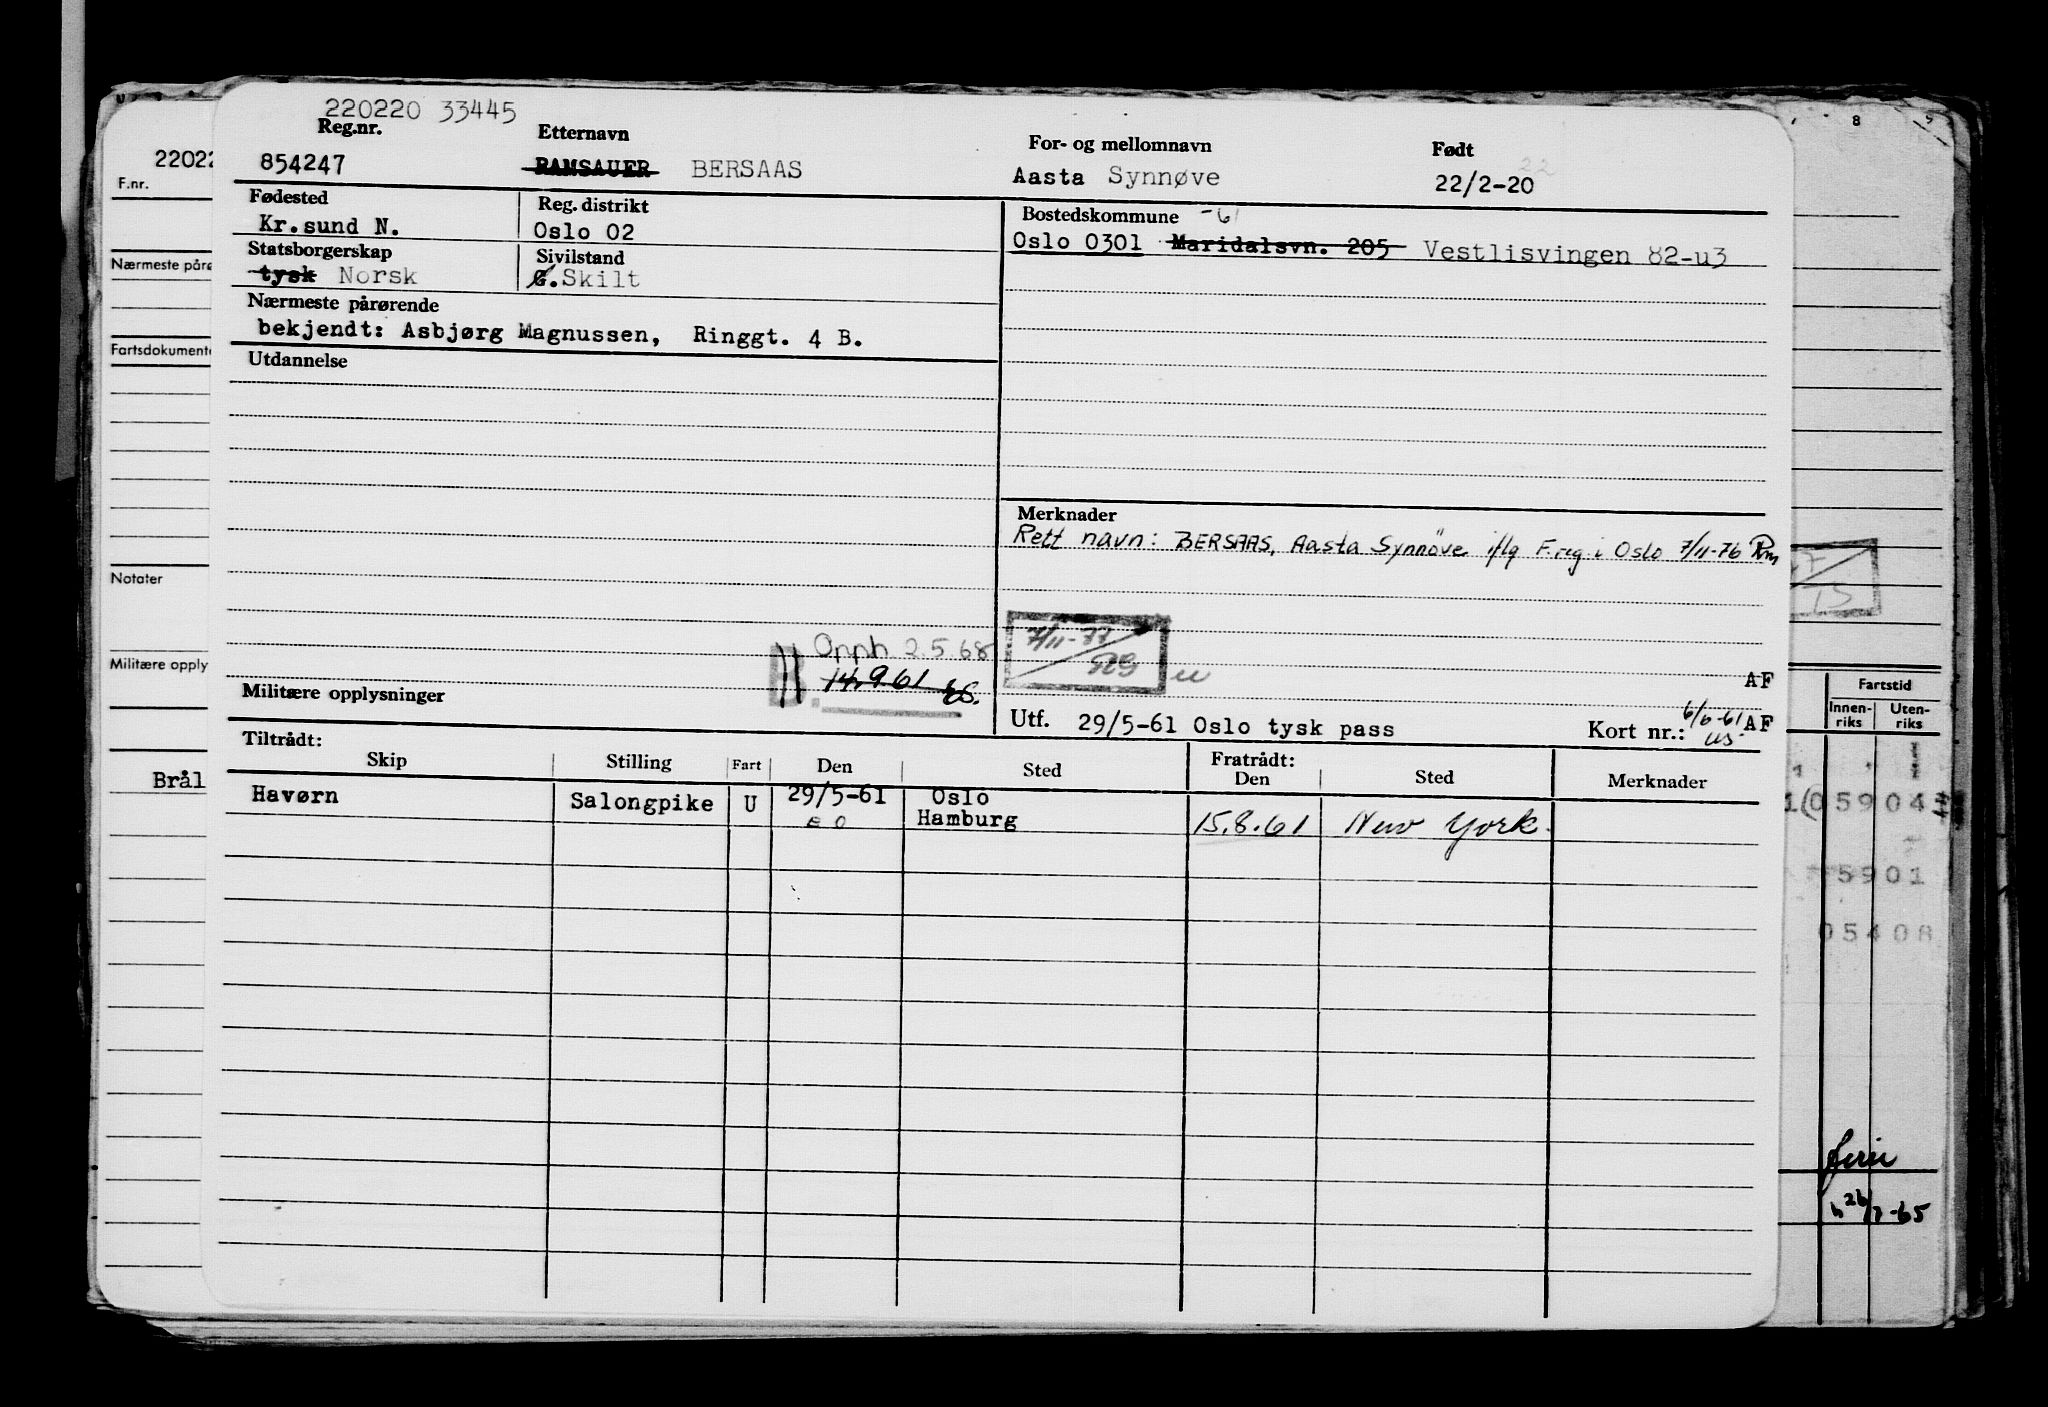 220220 33445
Reg.nr. Etternavn For- og mellomnavn Født
854247 RAMSAUER BERSAAS Aasta Synnøve 22/2-20
Fødested Reg. distrikt Bostedskommune -61
Kr.sund N. Oslo 02 Oslo 0301 Maridalsvn. 205 Vestlisvingen 82-u3
Statsborgerskap Sivilstand
tysk Norsk G. Skilt
Nærmeste pårørende
bekjendt: Asbjørg Magnussen, Ringgt. 4 B.
Utdannelse
Merknader
Rett navn: BERSAAS, Aasta Synnöve iflg F.reg. i Oslo 7/11-76 Rm
Opph 2.5.68
7/11-77
529
B. 14.9.61
AF
Militære opplysninger
Utf. 29/5-61 Oslo tysk pass Kort nr.: 6/6-61 AF
us
Tiltrådt: Fratrådt:
Skip Stilling Fart Den Sted Den Sted Merknader
Havørn Salongpike U 29/5-61 Oslo
Hamburg 15.8.61 New York.
22022
F.nr.
Nærmeste påre
Fartsdokumente
Notater
Militære opply
Brål
8
Fartstid
Innen-riks Uten-riks
05904
5901
05408
ferie